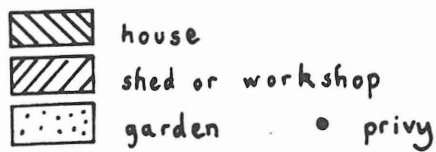 house
shed or workshop
garden privy